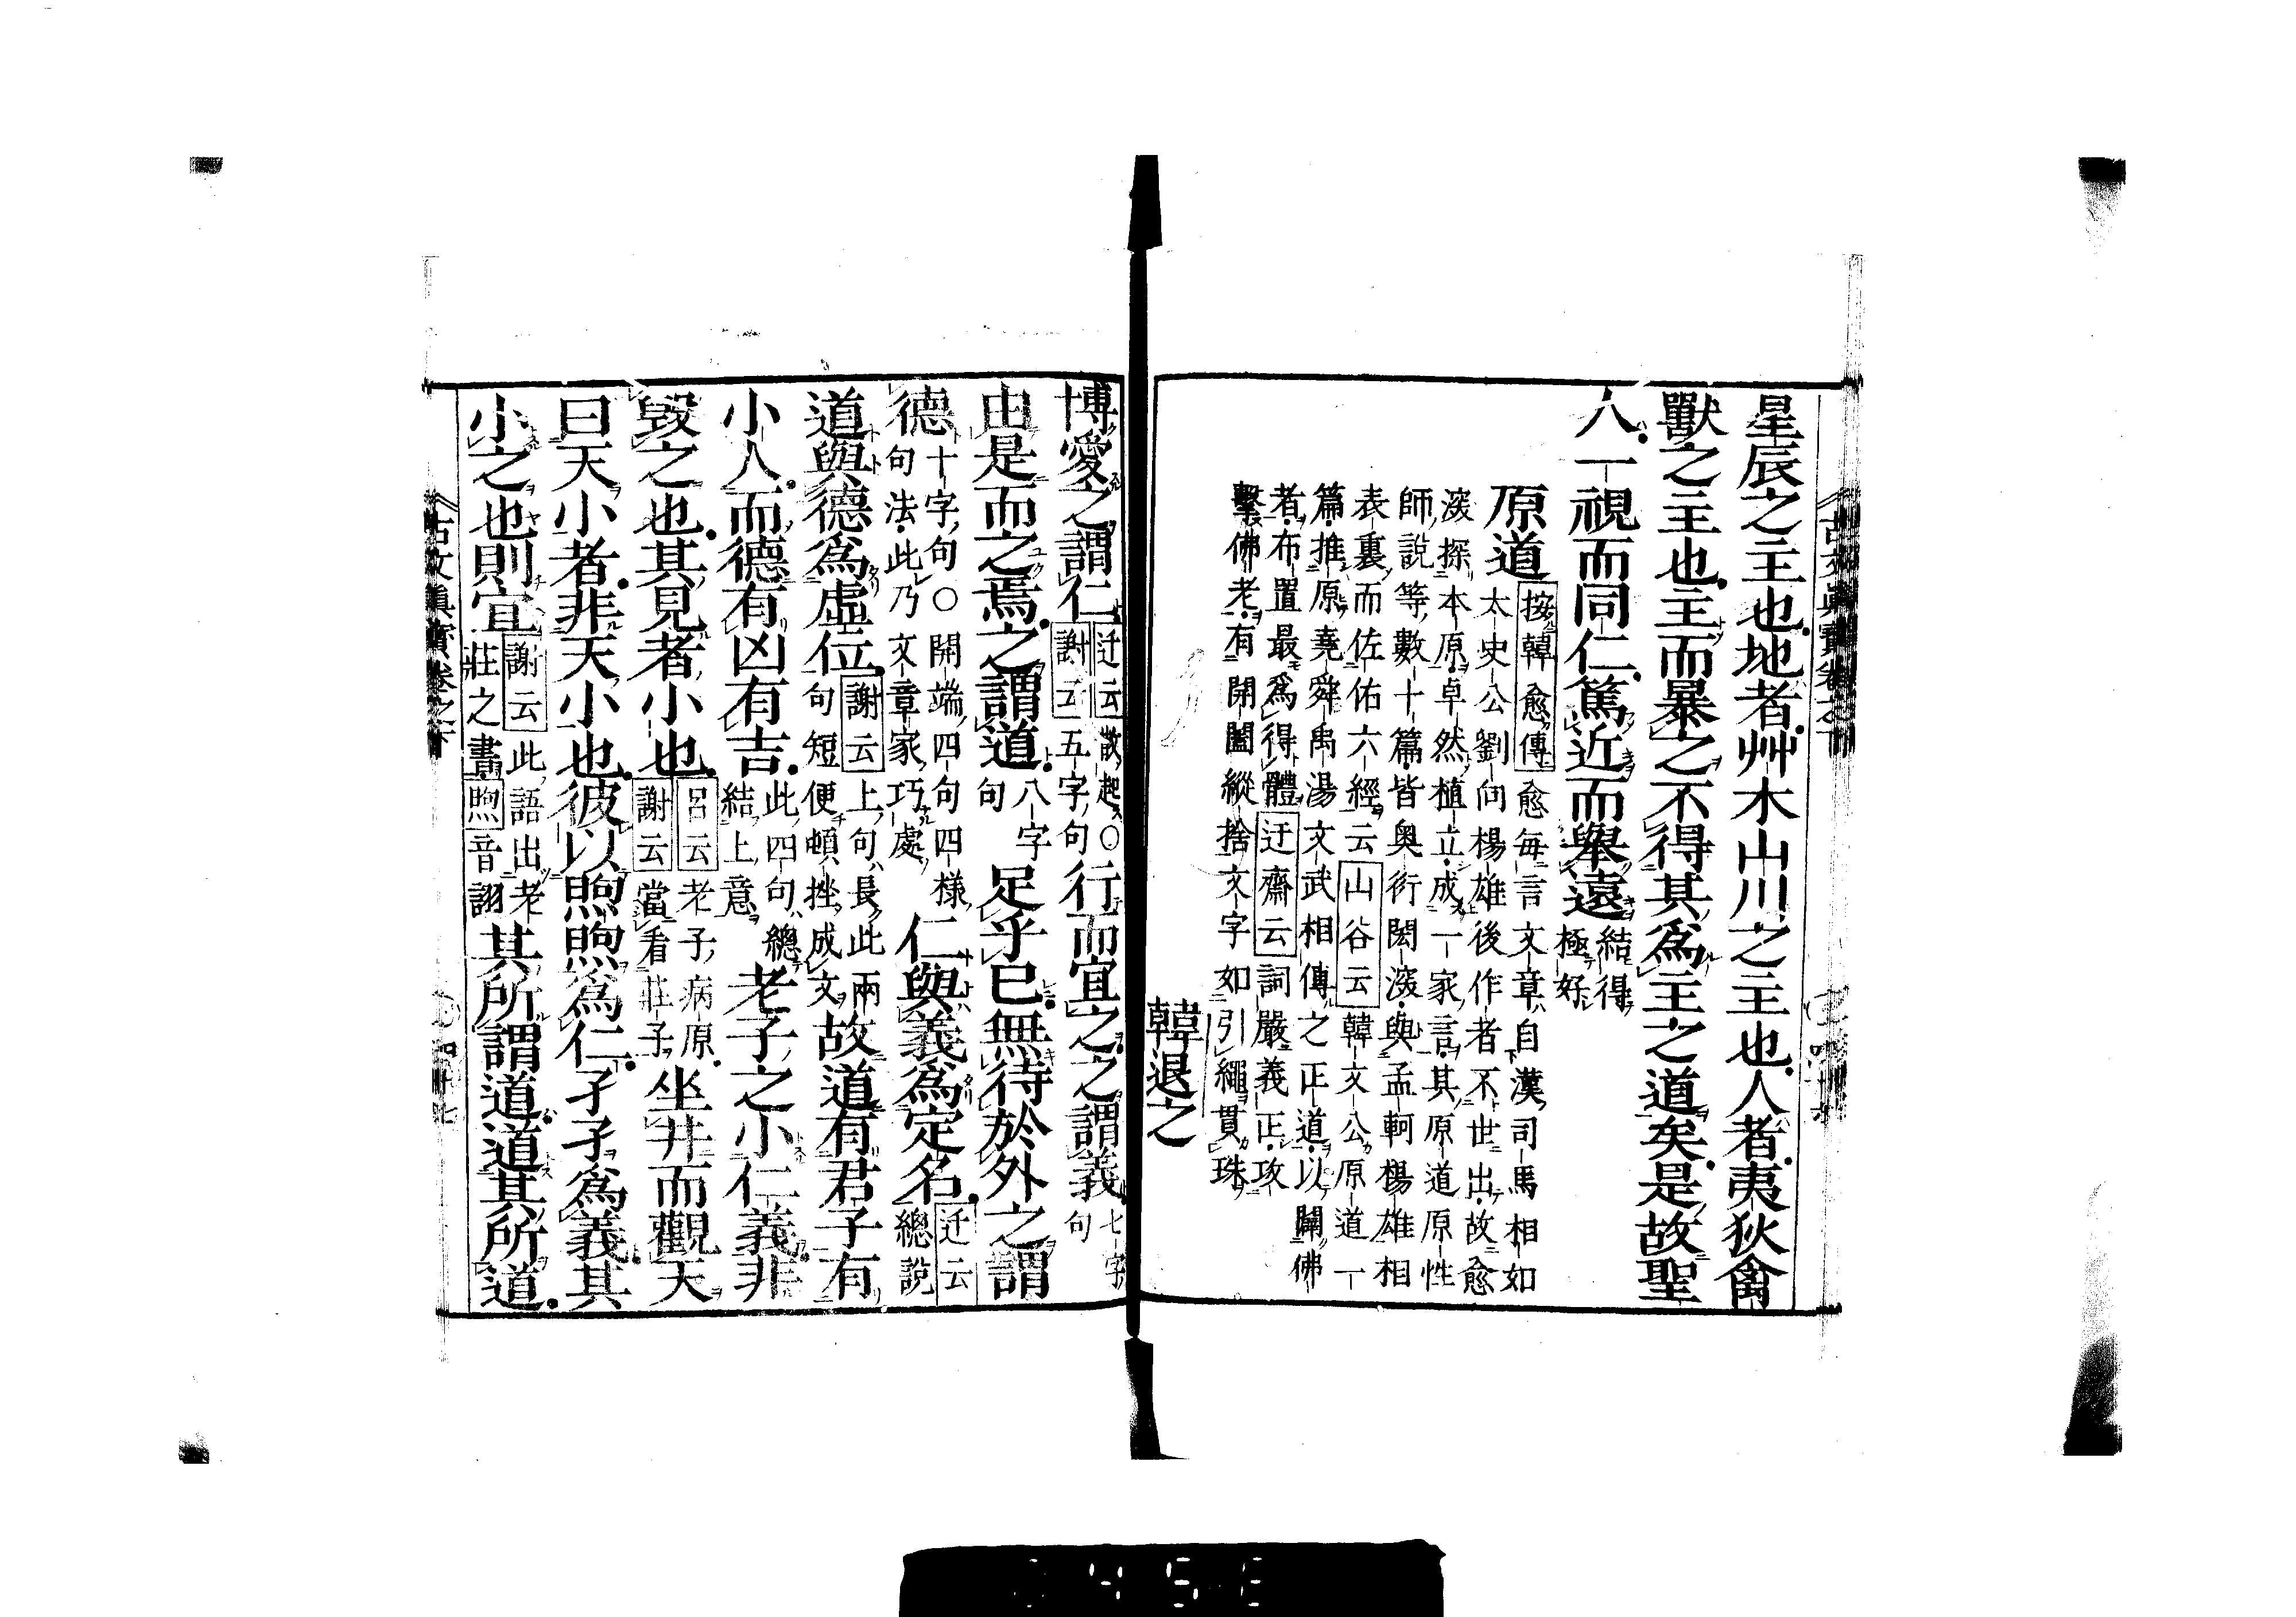 星辰之主也地者艸木山川之主也人者夷狄禽
獸之主也主而暴之不得其爲主之道矣是故聖
人一視而同仁篤近而舉遠結得極好
原道按韓愈傳愈每言文章自漢司馬相如
太史公劉向楊雄後作者不世出故愈
深探本原卓然植立成一家言其原道原性
師說等數十篇皆奥衍閎深與孟軻楊雄相
表裏而佐佑六經云山谷云韓文公原道一
篇推原堯舜禹湯文武相傳之正道以闢佛
者布置最爲得體迂齋云詞嚴義正攻
擊佛老有開闔縱捨文字如引繩貫珠
韓退之
博愛之謂仁迂云散起〇謝云五字句行而宜之之謂義七字句
由是而之焉之謂道八字句足乎已無待於外之謂
德十字句〇開端四句四樣句法此乃文章家巧處仁與義爲定名迂云總說
道與德爲虛位謝云上句長此兩句短便頓挫成文故道有君子有
小人而德有凶有吉此四句總結上意老子之小仁義非
毀之也其見者小也呂云老子病原謝云當看莊子坐井而觀天
曰天小者非天小也彼以煦煦爲仁孑孑爲義其
小之也則宜謝云此語出老莊之書煦音詡其所謂道道其所道
古文眞寳卷之下